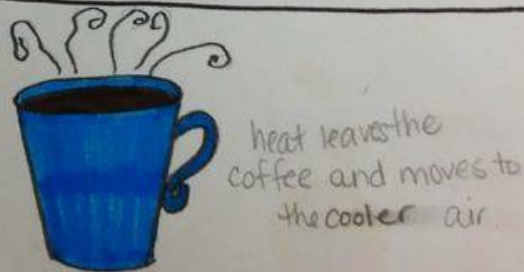 heat leaves the
coffee and moves to
the cooler air